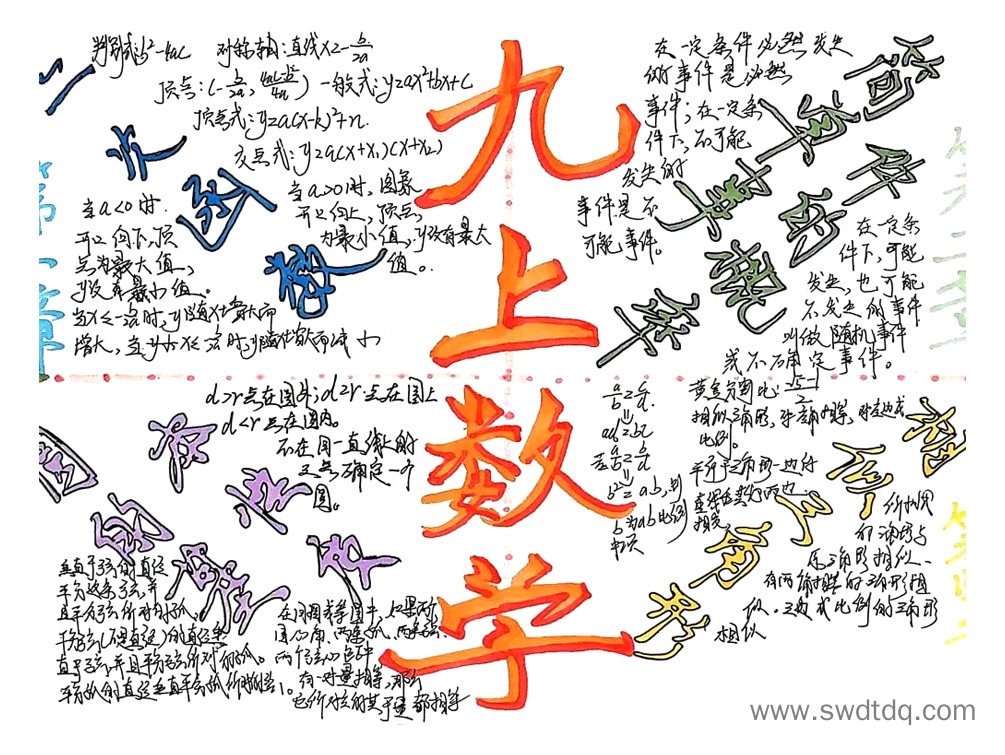 第一章
二次函数
判别式:b²-4ac 对称轴:直线x=-b/2a
顶点:(-b/2a, 4ac-b²/4a) 一般式:y=ax²+bx+c
顶点式:y=a(x-k)²+n
交点式:y=a(x+x₁)(x+x₂)
当a<0时.
开口向下,顶
点为最大值,
y没有最小值。
增大,
当a>0时,图象
开口向上,顶点,
为最小值,y没有最大
值。
九上数学
简单事件的概率
在一定条件必然发生
的事件是必然
事件;在一定条
件下,不可能
发生的
事件是不
可能事件。
在一定条
件下,可能
发生,也可能
不发生的事件
叫做随机事件
或不确定事件。
圆的基本性质
d>r点在圆外;d=r点在圆上
d<r点在圆内。
不在同一直线上的
三点确定一个
圆。
垂直于弦的直径
平分这条弦,并
且平分弦所对的弧。
平分弦(不是直径)的直径垂
直于弦,并且平分弦所对的弧。
平分弧的直径垂直平分弧所对的弦。
在同圆或等圆中,如果两个
圆心角、两条弧、两条弦、
两个弦心距中
有一对量相等,那么
它们所对应的其余量都相等
相似三角形
a/b=c/d
ad=bc
b²=ab,则
b为ab比例
中项
黄金分割比:√5-1/2
相似三角形,对应角相等,对应边成
比例。
平行于三角形一边的
直线
相交,
所构成
的三角形与
原三角形相似.
有两角相等的三角形相
似.三边成比例的三角形
相似
www.swdtdq.com